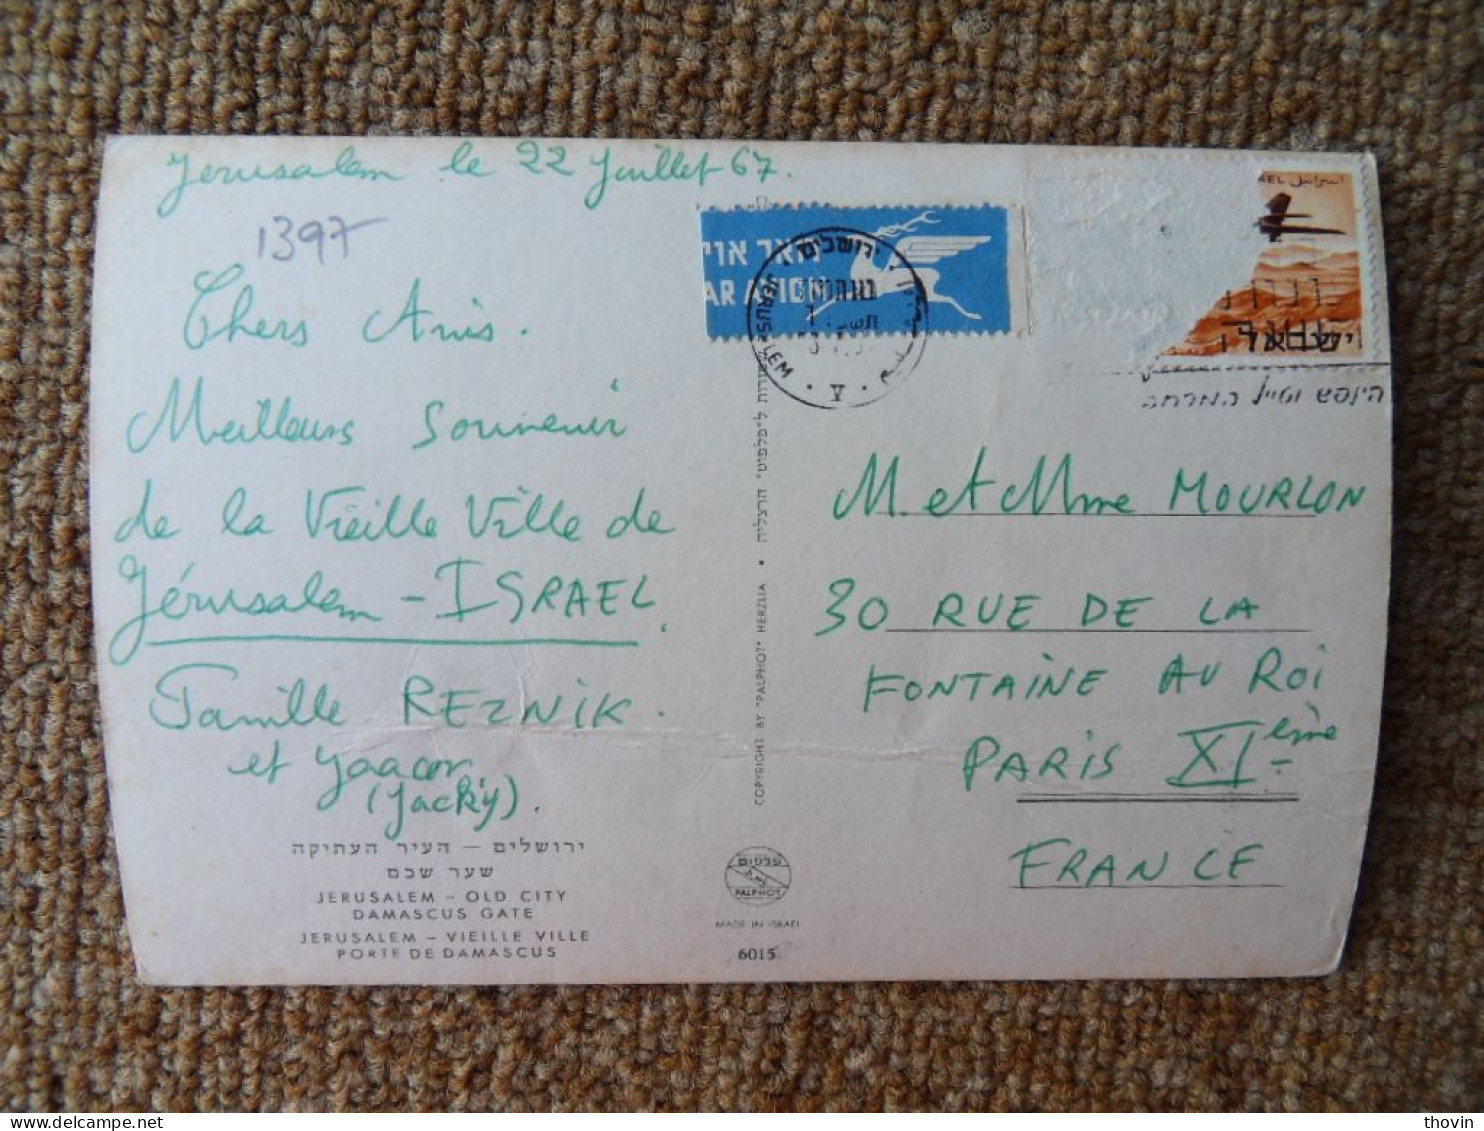 Jerusalem le 22 Juillet 67.
1397
Chers Amis.
Meilleurs Souvenir
de la Vieille Ville de
Jérusalem - ISRAEL.
Famille REZNIK.
et Yaacov
(Jacky).
ירושלים – העיר העתיקה
שער שכם
JERUSALEM – OLD CITY
DAMASCUS GATE
JERUSALEM – VIEILLE VILLE
PORTE DE DAMASCUS
COPYRIGHT BY "PALPHOT" HERZLIA • הרצליה
פלפוט
PALPHOT
MADE IN ISRAEL
6015
דואר אויר
PAR AVION
ירושלים
JERUSALEM
V
اسرائيل
ישראל
M. et Mme MOURLON
30 RUE DE LA
FONTAINE AU ROI
PARIS XIème
FRANCE
thovin